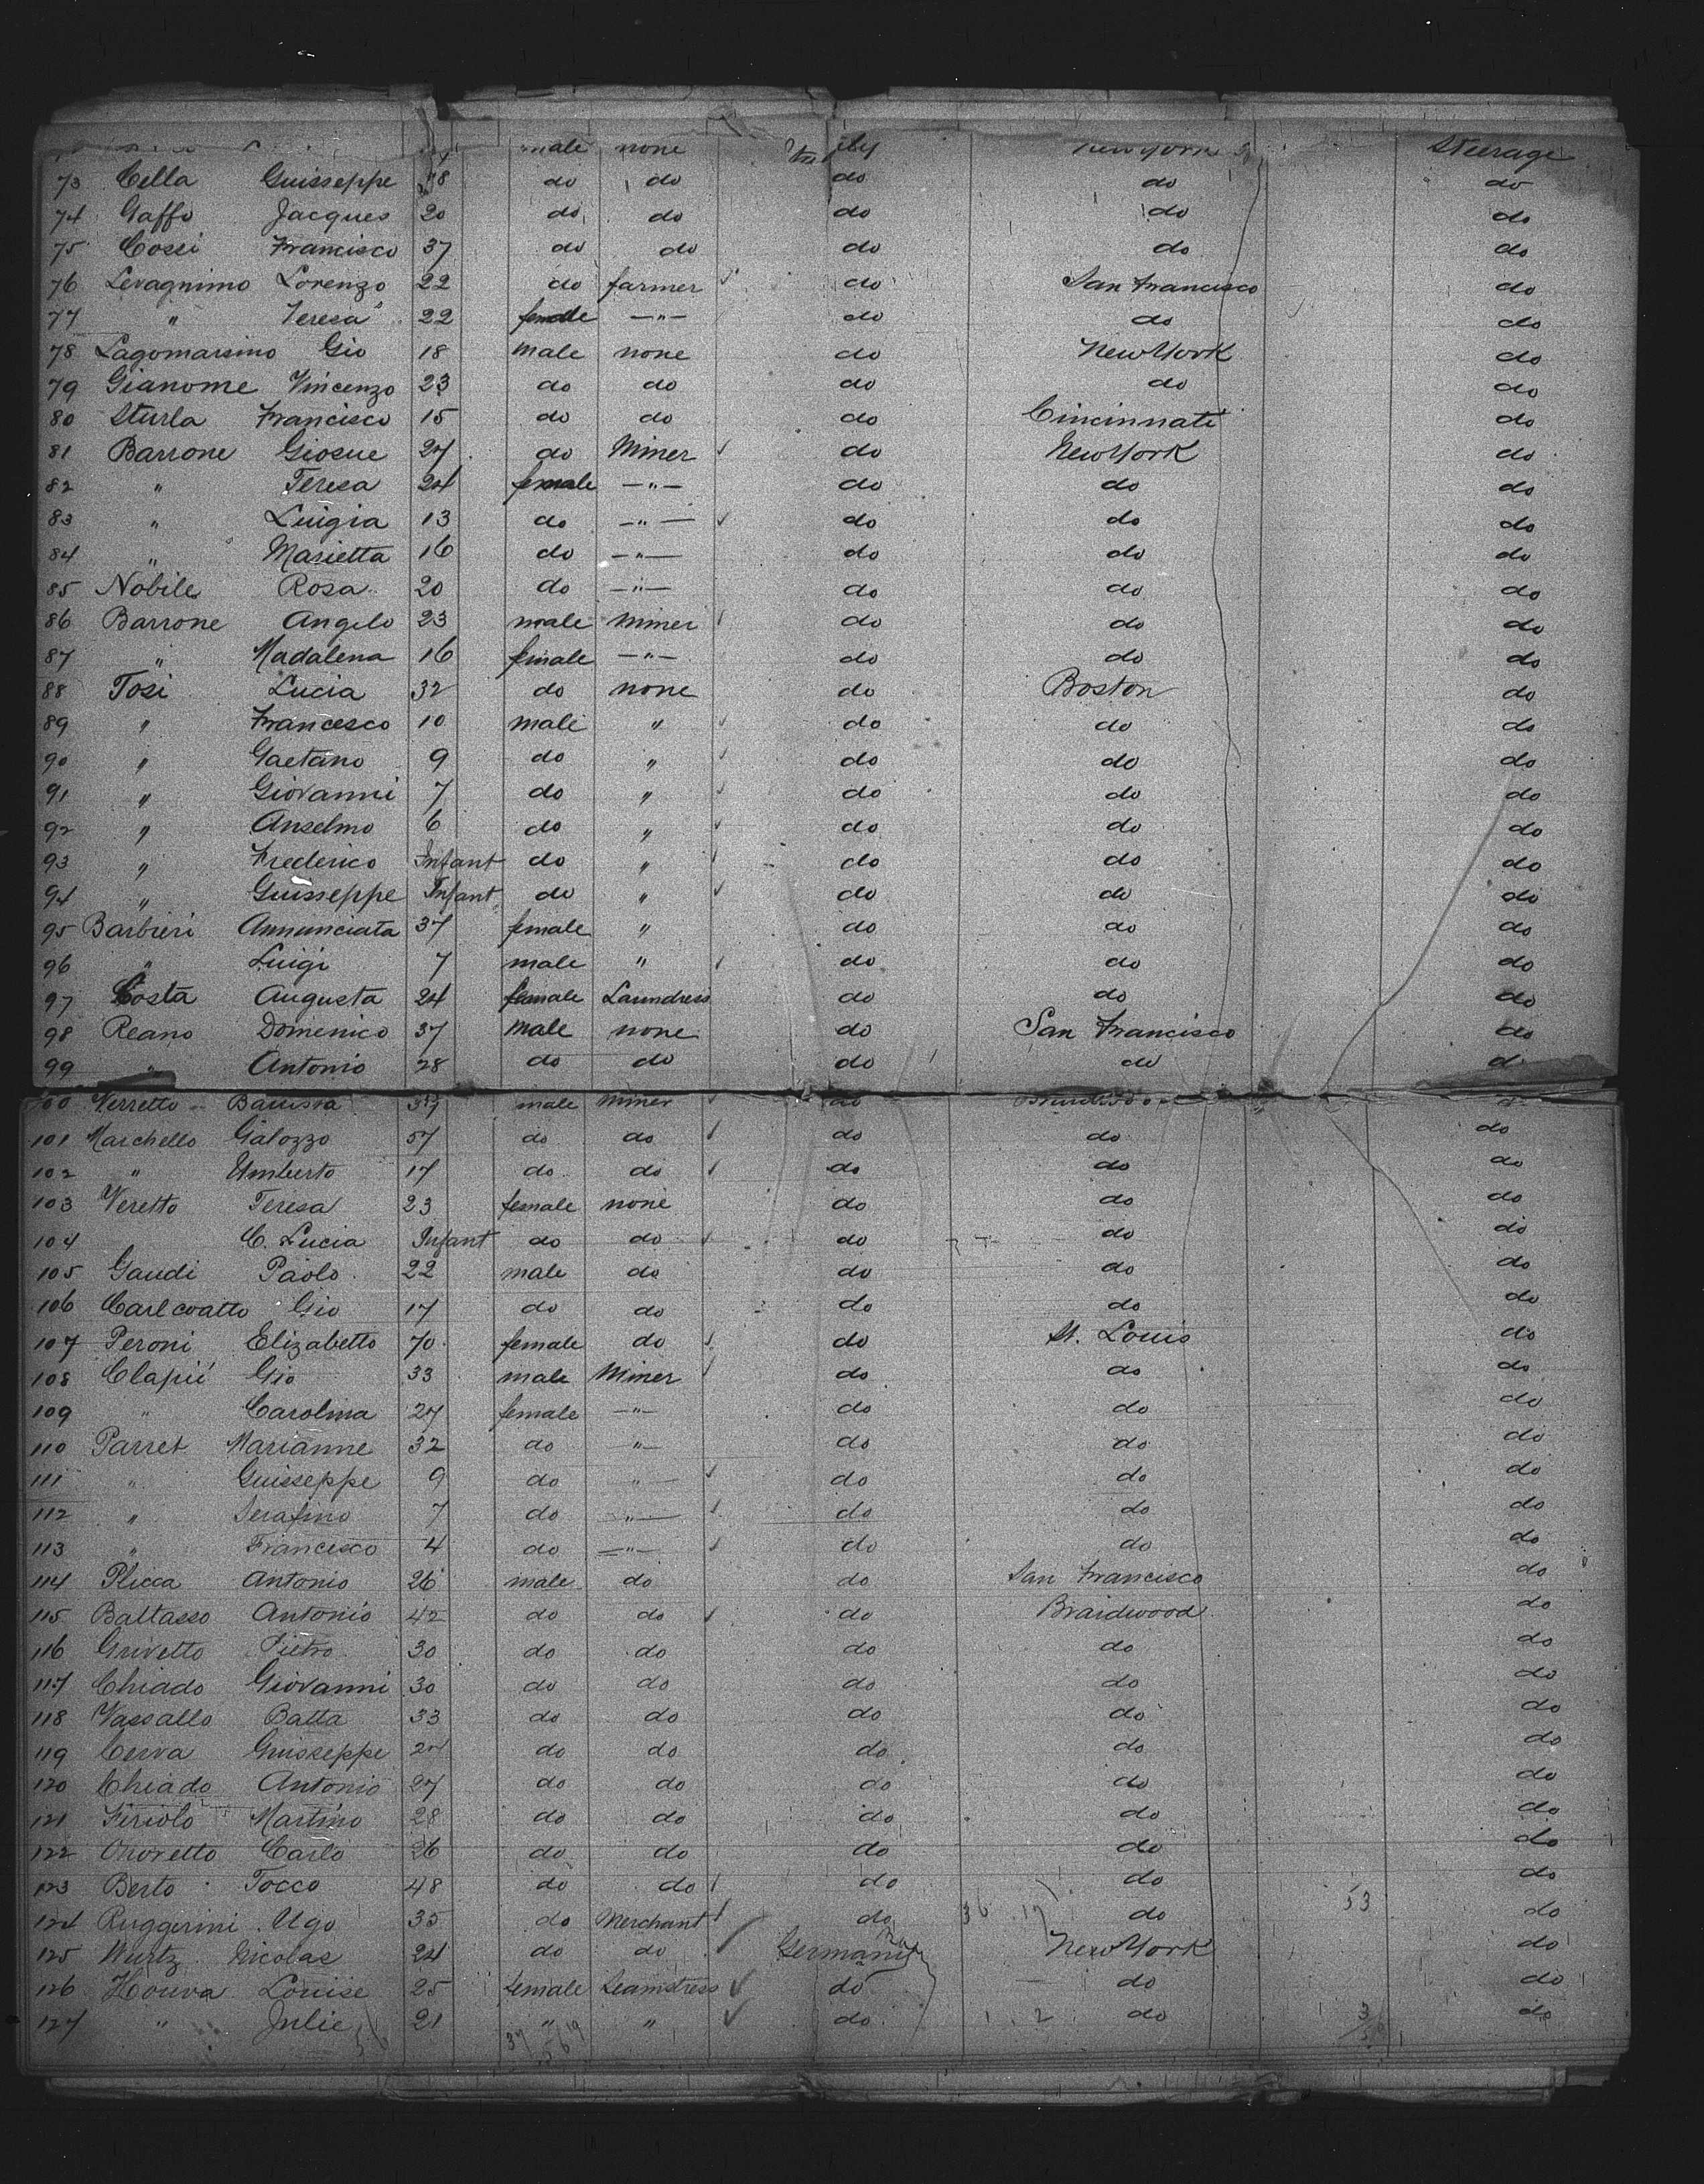 male none Italy New York Steerage
73 Cella Guisseppe 18 do do do do do
74 Gaffo Jacques 20 do do do do do
75 Cossi Francisco 37 do do do do do
76 Levagnimo Lorenzo 22 do farmer do San Francisco do
77 " Teresa 22 female —"— do do do
78 Lagomarsino Gio 18 male none do New York do
79 Gianome Vincenzo 23 do do do do do
80 Sturla Francisco 15 do do do Cincinnati do
81 Barrone Giosue 27 do Miner do New York do
82 " Teresa 24 female —"— do do do
83 " Luigia 13 do —"— do do do
84 " Marietta 16 do —"— do do do
85 Nobile Rosa 20 do —"— do do do
86 Barrone Angelo 23 male Miner do do do
87 " Madalena 16 female —"— do do do
88 Tosi Lucia 32 do none do Boston do
89 " Francesco 10 male " do do do
90 " Gaetano 9 do " do do do
91 " Giovanni 7 do " do do do
92 " Anselmo 6 do " do do do
93 " Frederico Infant do " do do do
94 " Guisseppe Infant do " do do do
95 Barbieri Annunciata 37 female " do do do
96 " Luigi 7 male " do do do
97 Costa Augusta 24 female Laundress do do do
98 Reano Domenico 37 male none do San Francisco do
99 " Antonio 28 do do do do do
100 Verretto Battista male Miner do
101 Marchello Galozzo 57 do do do do do
102 " Umberto 17 do do do do do
103 Veretto Teresa 23 female none do do do
104 C. Lucia Infant do do do do do
105 Gaudi Paolo 22 male do do do do
106 Carlcoatto Gio 17 do do do do do
107 Peroni Elizabetto 70 female do do St. Louis do
108 Clapii Gio 33 male Miner do do do
109 " Carolina 27 female —"— do do do
110 Parret Marianne 32 do "— do do do
111 " Guisseppe 9 do "— do do do
112 " Serafino 7 do —"— do do do
113 " Francisco 4 do —"— do do do
114 Plicca Antonio 26 male do do San Francisco do
115 Baltasso Antonio 42 do do do Braidwood do
116 Grivetto Pietro 30 do do do do do
117 Chiado Giovanni 30 do do do do do
118 Vassallo Batta 33 do do do do do
119 Cerva Guisseppe do do do do do
120 Chiado Antonio 27 do do do do do
121 Firiolo Martino 28 do do do do do
122 Onoretto Carlo 26 do do do do do
123 Berto Tocco 48 do do do do do
124 Ruggerini Ugo 35 do Merchant do 36 17 do 53 do
125 Wurtz Nicolas 24 do do Germany New York do
126 Houva Louise 25 female Seamstress do do do
127 " Julie 21 " " do 2 do 3 do